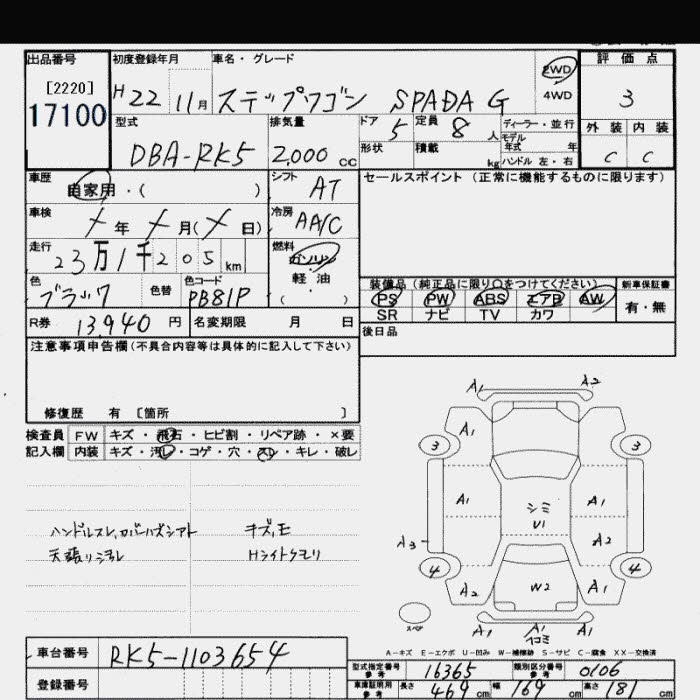 出品番号 初度登録年月 車名・グレード 2WD 評価点
[2220] H22 11月 ステップワゴン SPADA G 4WD 3
17100
型式 排気量 ドア 5 定員 8人 ディーラー・並行 外装 内装
DBA-RK5 2,000cc 形状 積載 kg モデル年式 年 C C
ハンドル 左・右
車歴 自家用・( ) シフト AT セールスポイント (正常に機能するものに限ります)
車検 年 月( 日) 冷房 AA/C
走行 23万1千205km 燃料 ガソリン
軽油
( )
色 ブラック 色替 色コード PB81P 装備品(純正品に限り○をつけてください) 新車保証書
PS PW ABS エアB AW 有・無
R券 13,940円 名変期限 月 日 SR ナビ TV カワ
後日品
注意事項申告欄(不具合内容等は具体的に記入して下さい)
修復歴 有 [箇所 ]
検査員 FW キズ・飛石・ヒビ割・リペア跡・×要
記入欄 内装 キズ・汚レ・コゲ・穴・スレ・キレ・破レ
ハンドルスレ,カバーハズシアト キズ,モ
天張リヨゴレ Hライトクモリ
A1 A2
A1
3 3
A1 シミ A1
U1
A3 A2
4 4
A2 W2 A1
スペア A1 A1 A1
イコミ
A-キズ E-エクボ U-凹み W-補修跡 S-サビ C-腐食 XX-交換済
車台番号 RK5-1103654
型式指定番号参考 16365 類別区分番号参考 0106
登録番号
車庫証明用参考 長さ 469cm 幅 169cm 高さ 181cm